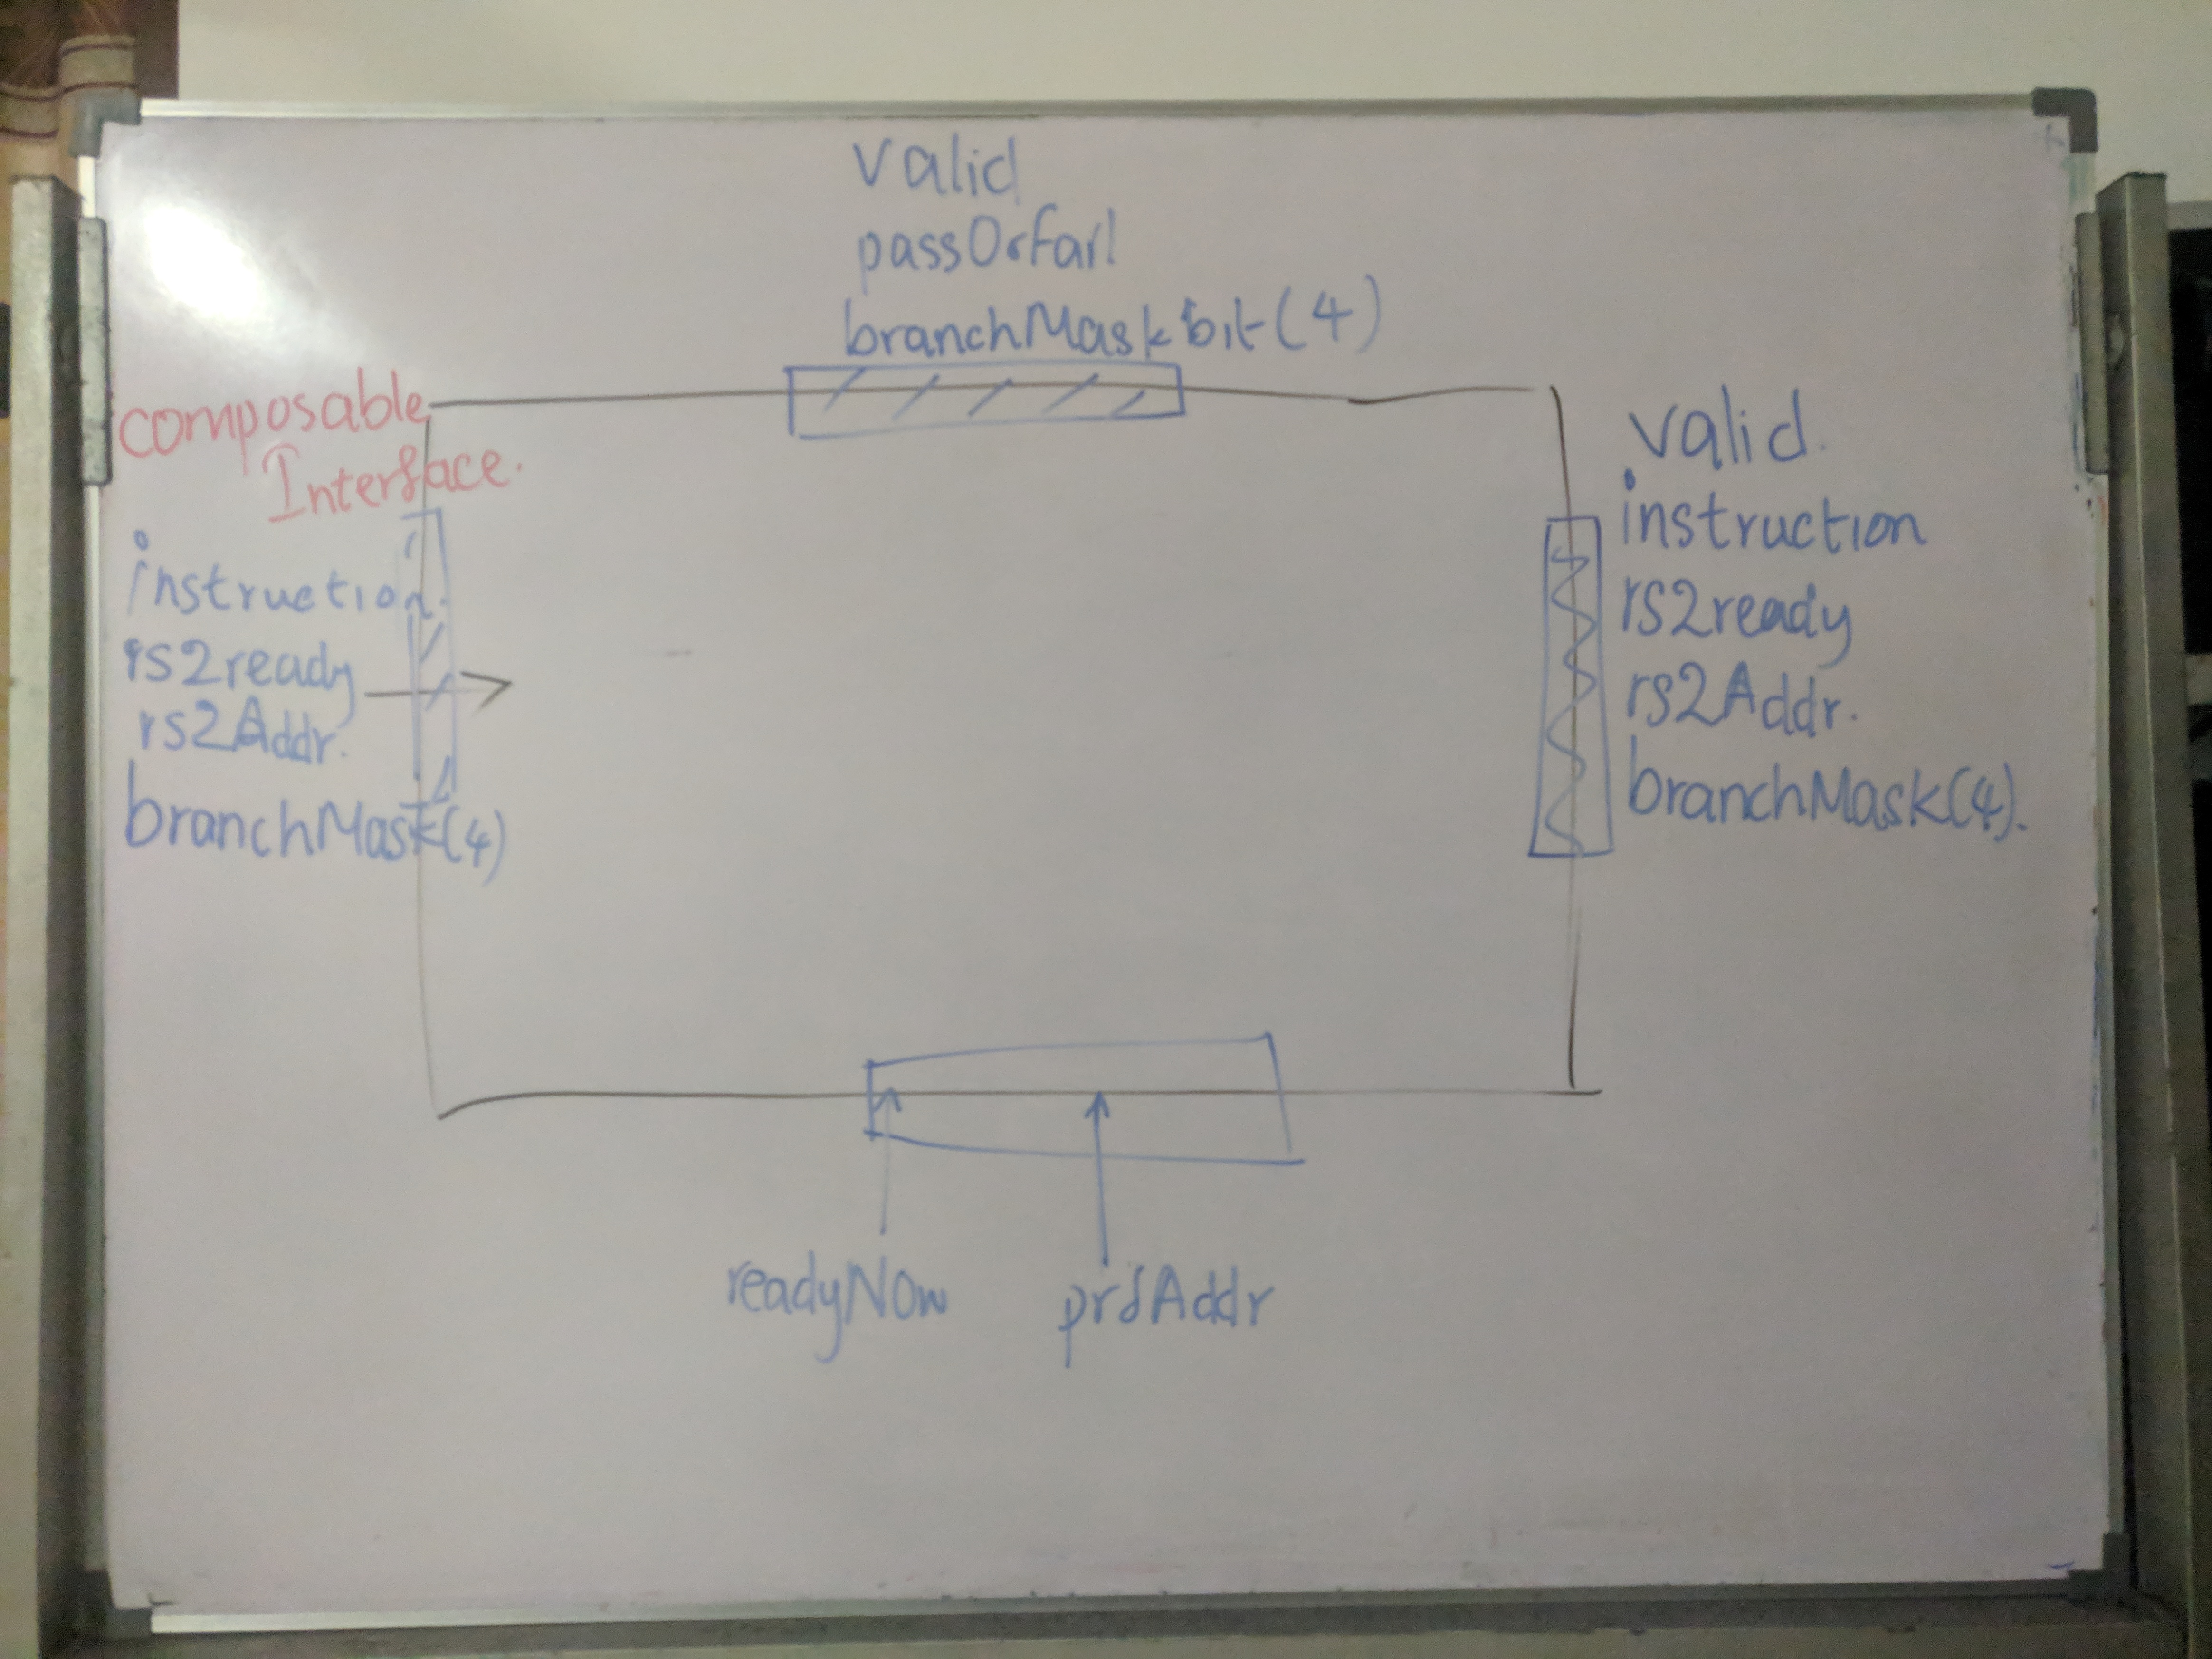 valid
passOrFail
branchMaskbit(4)
composable
Interface.
instruction.
rs2ready
rs2Addr.
branchMask(4)
valid.
instruction
rs2ready
rs2Addr.
branchMask(4).
readyNow
prdAddr